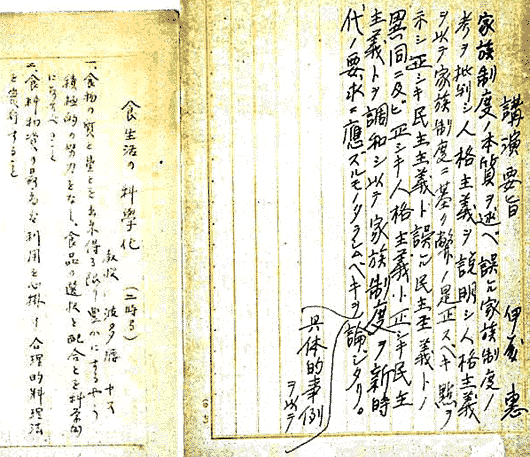 講演要旨 恵
家族制度ノ本質ヲ述ベ誤レル家族制度ノ
考ヲ批判シ人格主義ヲ説明シ人格主義
ヲ以テ家族制度ニ基ク弊ノ是正スベキ點ヲ
示シ正シキ民主主義ト誤レル民主主義トノ
異同ニ及ビ正シキ人格主義ト正シキ民主
主義トヲ調和シ以テ家族制度ヲ新時
代ノ要求ニ應ズルモノタラシムベキヲ論ジタリ。
具体的事例
ヲ以テ
食生活の科學化 (二時間)
教授 波多腰 ヤス
一、食物の質と量とを出来得る限り豊かにするやう
積極的の努力をなし、食品の選択と配合とを科学的
になすべきこと
二、食料物資の最高度利用を心掛け合理的料理法
を實行すること